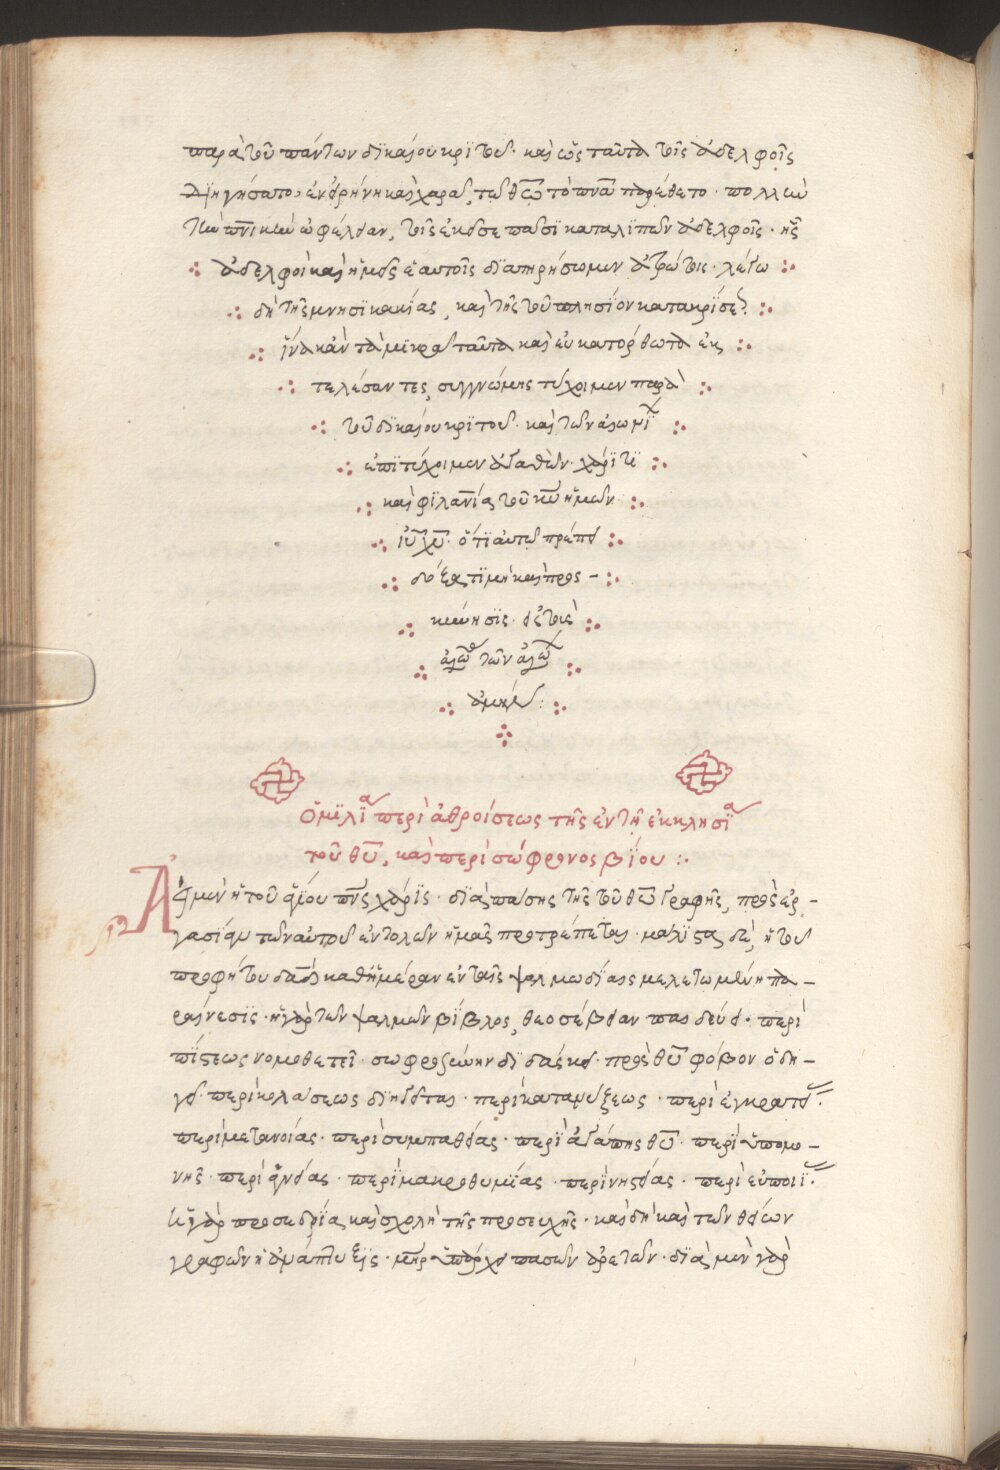 παρὰ τοῦ πάντων δϊκαίου κρϊτοῦ· καὶ ὡς ταῦτα τοῖς ἀδελφοῖς
διηγήσατο, ἐν εἰρήνη καὶ χαρᾶ, τῶ θῶ τὸ πνᾶ παρέθετο· πολλὴν
τὴν πνϊκὴν ὠφέλειαν, τοῖς ἐκεῖσε πᾶσϊ καταλϊπὼν ἀδελφοῖς·
ἀδελφοὶ καὶ ἡμεῖς ἑαυτοῖς δϊατηρήσωμεν ἀτρώτους· λέγω
δὴ τῆς μνησϊκακίας, καὶ τῆς τοῦ πλησίον κατακρίσεως·
ἵνα κἂν τὰ μϊκρὰ ταῦτα καὶ εὐκατόρθωτα ἐκ
τελέσαντες, συγγνώμης τύχοιμεν παρὰ
τοῦ δϊκαίου κρϊτοῦ· καὶ τῶν αἰωνϊ
ἐπϊτύχοιμεν ἀγαθῶν· χάρϊτϊ
καὶ φϊλανΐας τοῦ κῦ ἡμῶν
ἰῦ χῦ· ὅτϊ αὐτῶ πρέπει
δόξα τϊμὴ καὶ προσ-
κύνησϊς· εἰς τοὺς
αἰῶας τῶν αἰώ
ἀμήν:
Ὁμϊλΐα περὶ ἀθροίσεως τῆς ἐν τῆ ἐκκλησΐα
τοῦ θῦ, καὶ περὶ σώφρονος βΐου :·
Ἀεὶ μὲν ἡ τοῦ ἁγΐου πνς χάρϊς· δϊὰ πάσης τῆς τοῦ θῦ γραφῆς, πρὸς ἐρ-
γασΐαν τῶν αὐτοῦ ἐντολῶν ἡμᾶς προτρέπεται· μάλϊστα δὲ, ἡ τοῦ
προφήτου δαδ καθ' ἡμέραν ἐν ταῖς ψαλμωδΐαις μελετωμένη πα-
ραίνεσϊς· ἡ γὰρ τῶν ψαλμῶν βΐβλος, θεοσέβειαν παιδεύει· περὶ
πΐστεως νομοθετεῖ· σωφροσύνην δϊδάσκει· πρὸς θῦ φόβον ὁδη-
γεῖ· περὶ κολάσεως δϊηγεῖται· περὶ κατανύξεως· περὶ ἐγκρατεί·
περὶ μετανοίας· περὶ συμπαθείας· περϊ ἀγάπης θῦ· περϊ ὑπομο-
νῆς· περὶ ἁγνείας· περϊ μακροθυμΐας· περὶ νηστείας· περὶ εὐποιΐ·
ἡ γὰρ προσεδρΐα καὶ σχολὴ τῆς προσευχῆς· καὶ δὴ καὶ τῶν θείων
γραφῶν ἡ ἀνάπτυξϊς· μηρ ὑπάρχει πασῶν ἀρετῶν· δϊὰ μὲν γὰρ